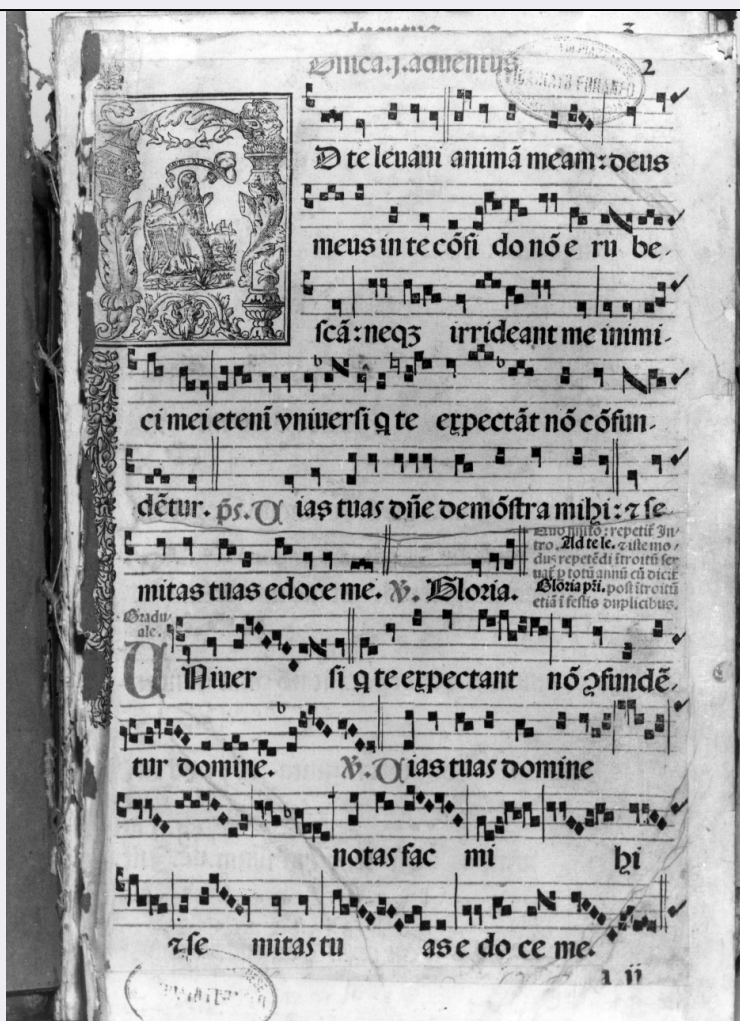 3
Dñica.j.aduentus 2
D te leuaui animā meam: deus
meus in te cōfi do nō e ru be-
scā: neqꝫ irrideant me inimi-
ci mei etenī vniuersi q te expectāt nō cōfun-
dētur. p̄s. U ias tuas dñe demōstra mihi: ⁊ se-
mitas tuas edoce me. ℣. Gloria.
repetit̄ In-
tro. Ad te le. ⁊ iste mo-
dus repetēdi ītroitū ser
uat̄ p totū annū cū dicit̄
Gloria pr̄i. post ītroitū
etiā ī festis duplicibus.
Gradu-
ale.
U Niuer si q te expectant nō ꝯfundē-
tur domine. ℣. U ias tuas domine
notas fac mi hi
⁊ se mitas tu as e do ce me.
a ij